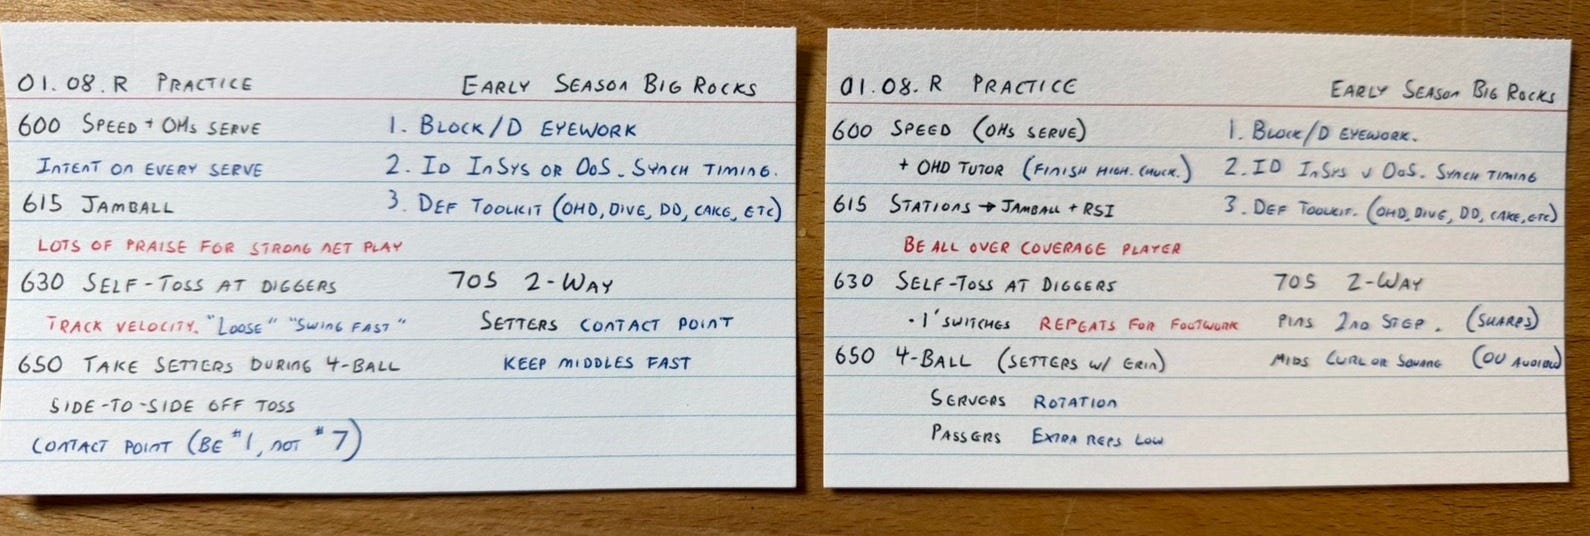 01.08.R PRACTICE EARLY SEASON BIG ROCKS
600 SPEED + OHs SERVE 1. BLOCK/D EYEWORK
INTENT ON EVERY SERVE 2. ID INSYS OR OOS. SYNCH TIMING.
615 JAMBALL 3. DEF TOOLKIT (OHD, DIVE, DD, CAKE, ETC)
LOTS OF PRAISE FOR STRONG NET PLAY
630 SELF-TOSS AT DIGGERS 705 2-WAY
TRACK VELOCITY. "LOOSE" "SWING FAST" SETTERS CONTACT POINT
650 TAKE SETTERS DURING 4-BALL KEEP MIDDLES FAST
SIDE-TO-SIDE OFF TOSS
CONTACT POINT (BE #1, NOT #7)
01.08.R PRACTICE EARLY SEASON BIG ROCKS
600 SPEED (OHs SERVE) 1. BLOCK/D EYEWORK.
+ OHD TUTOR (FINISH HIGH. CHUCK.) 2. ID INSYS V OOS. SYNCH TIMING
615 STATIONS → JAMBALL + RSI 3. DEF TOOLKIT. (OHD, DIVE, DD, CAKE, ETC)
BE ALL OVER COVERAGE PLAYER
630 SELF-TOSS AT DIGGERS 705 2-WAY
· 1' SWITCHES REPEATS FOR FOOTWORK PINS 2ND STEP. (SHARPS)
650 4-BALL (SETTERS W/ ERIN) MIDS CURL OR SQUARE
SERVERS ROTATION
PASSERS EXTRA REPS LOW